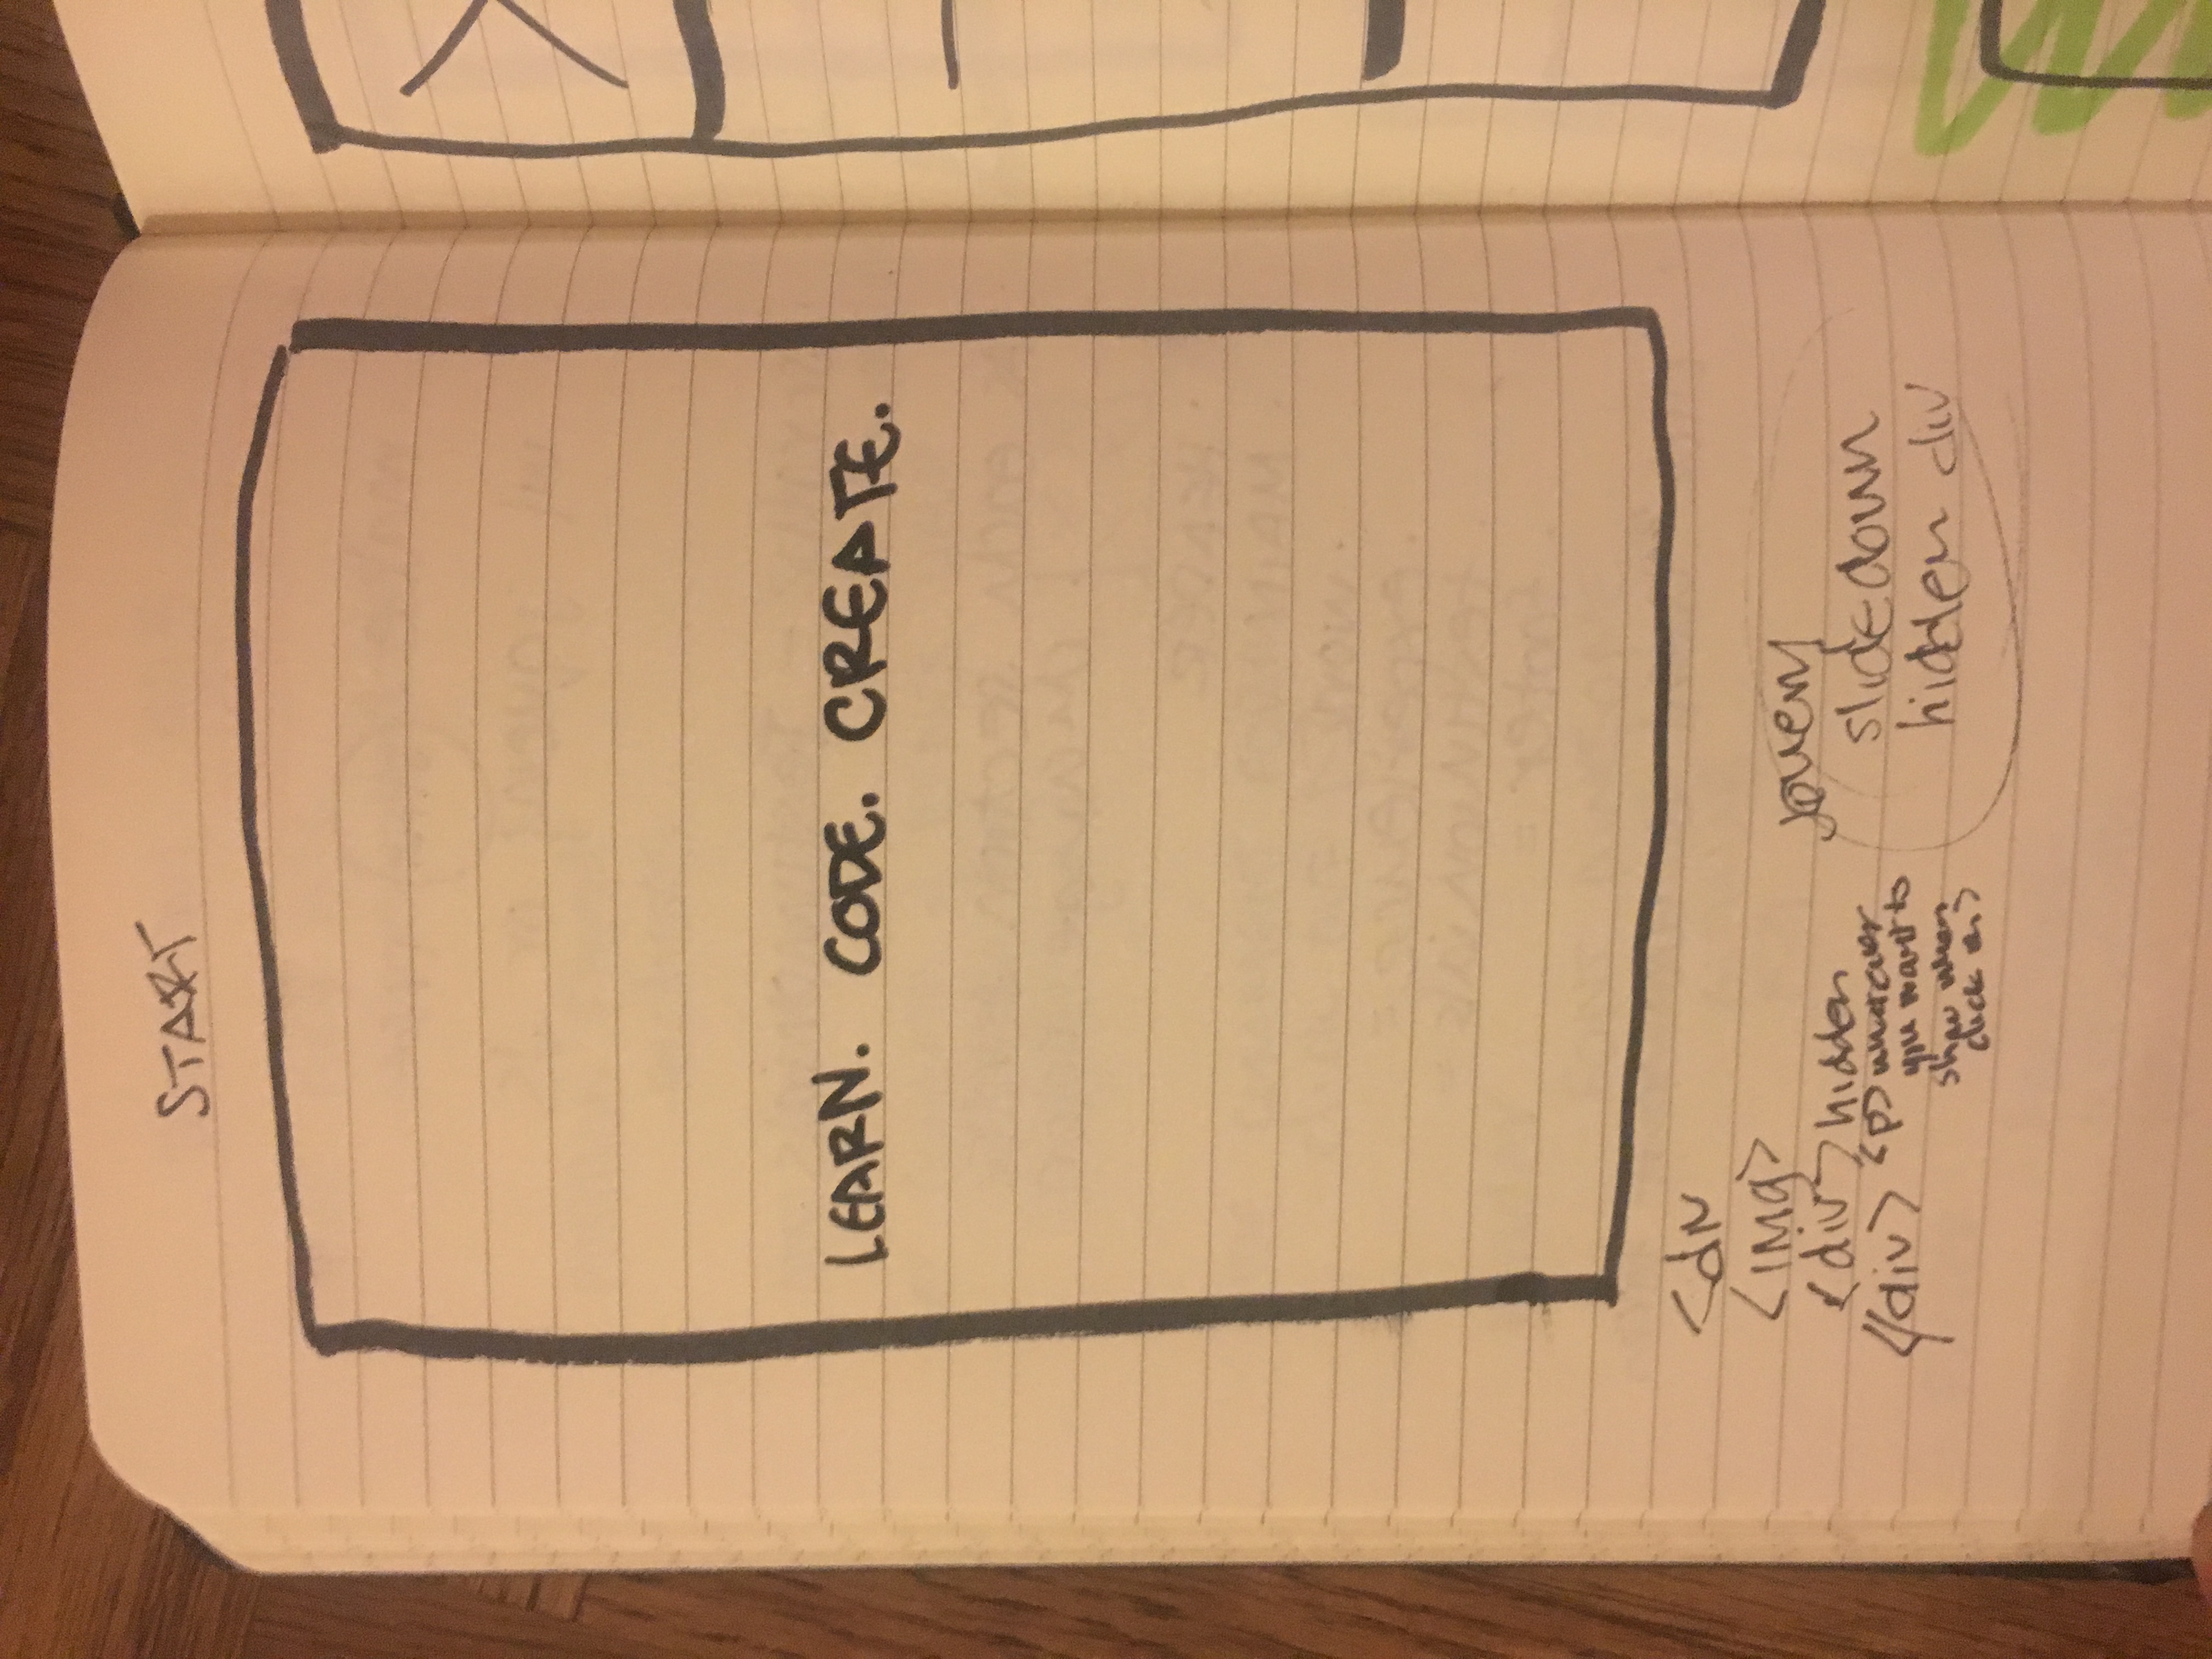 START
LEARN. CODE. CREATE.
<div
<img>
<div> hidden
</div> <p> whatever
you want to
show when
click on>
jquery
slidedown
hidden div